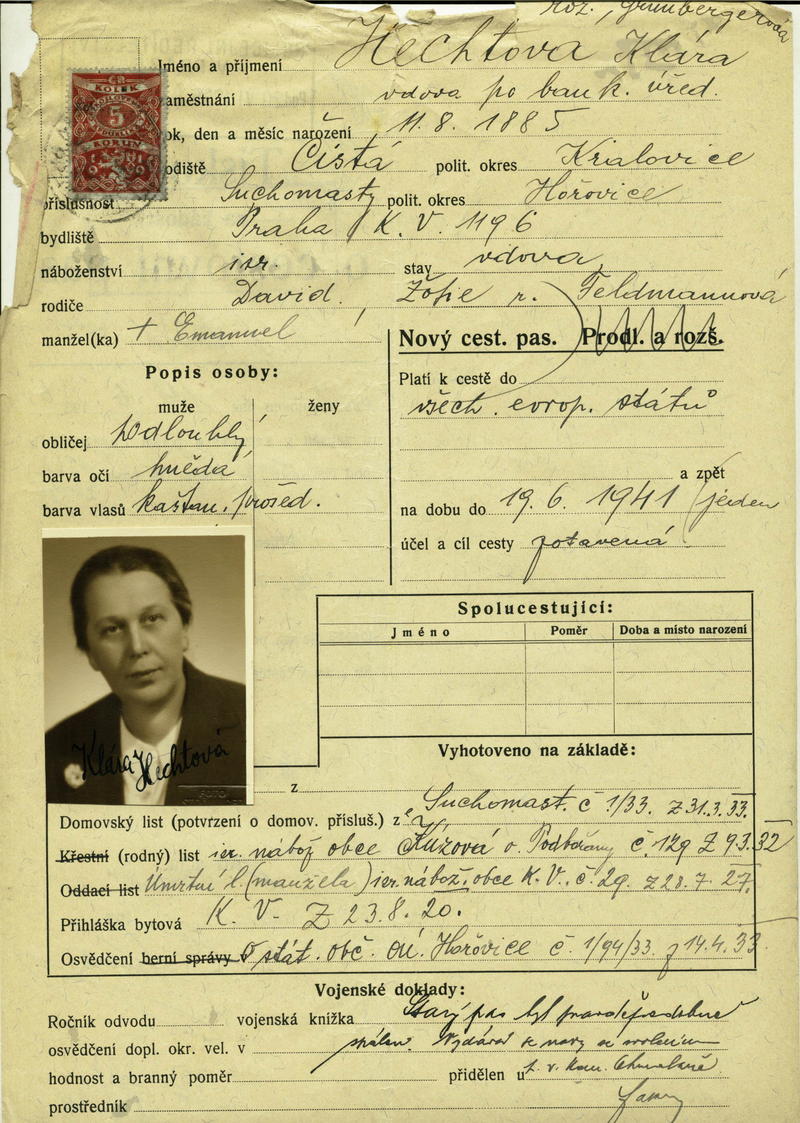 roz. Grünbergerová
Jméno a příjmení Hechtova Klára
zaměstnání vdova po bank. úřed.
rok, den a měsíc narození 11.8. 1885
rodiště Čistá polit. okres Kralovice
příslušnost Suchomasty polit. okres Hořovice
bydliště Praha K.V. 1196
náboženství isr. stav vdova
rodiče David, Žofie r. Feldmannová
manžel(ka) + Emanuel
Nový cest. pas. Prodl. a rozš.
Popis osoby:
Platí k cestě do
muže ženy
všech. evrop. států
obličej podlouhlý
barva očí hnědá
a zpět
barva vlasů kaštan. prošed.
na dobu do 19.6. 1941 (jeden
účel a cíl cesty zotavená
KOLEK
5
KORUN
Spolucestující:
Jméno Poměr Doba a místo narození
Klára Hechtová
FOTO
Vyhotoveno na základě:
z
Domovský list (potvrzení o domov. přísluš.) z Suchomast. č 1/33. z 31.3.33.
Křestní (rodný) list isr. nábož obce o. Podbořany č. 129 Z 9.3.32
Oddací list Úmrtní l. (manžela) isr. nábož. obce K.V. č. 29. z 28.7.27.
Přihláška bytová K.V. Z 23.8.20.
Osvědčení berní správy o stát. obč. OÚ. Hořovice č. 1/94/33 z 14.4.33.
Vojenské doklady:
Ročník odvodu vojenská knížka Starý pas byl pravděpodobně
osvědčení dopl. okr. vel. v spálen. se nový
hodnost a branný poměr přidělen u
prostředník